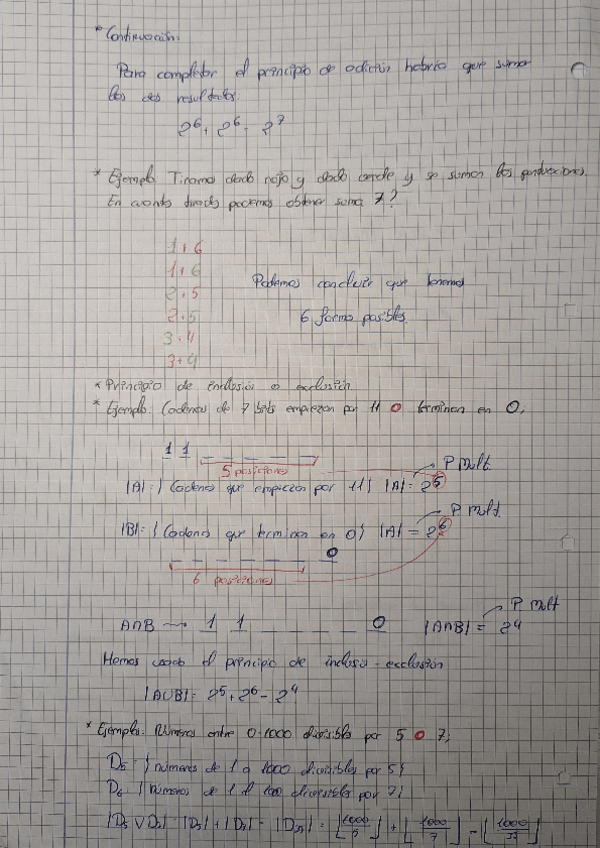 * Continuación:
Para completar el principio de adición habría que sumar
los dos resultados.
2^6 + 2^6 = 2^7
* Ejemplo Tiramos dado rojo y dado verde y se suman las puntuaciones.
En cuantos modos podemos obtener suma 7?
1 + 6
1 + 6
2 + 5
Podemos concluir que tenemos
2 + 5
6 forma posibles.
3 + 4
3 + 4
* Principio de inclusión o exclusión
* Ejemplo: Cadenas de 7 bits empiezan por 11 o terminan en 0;
1 1 _ _ _ _ _
5 posiciones
P Mult.
|A| = { Cadenas que empiezan por 11} |A| = 2^5
P Mult.
|B| = { Cadenas que terminan en 0} |A| = 2^6
_ _ _ _ _ _ 0
6 posiciones
P Mult
A∩B → 1 1 _ _ _ _ 0 |A∩B| = 2^4
Hemos usado el principio de inclusio - exclusión
|A∪B| = 2^5 + 2^6 - 2^4
* Ejemplo: Números entre 0-1000 divisibles por 5 o 7;
D5 = { números de 1 a 1000 divisibles por 5}
números de 1 divisibles por 7}
|D5 ∪ D7| = |D5| + |D7| - |D35| = ⌊1000/5⌋ + ⌊1000/7⌋ - ⌊1000/35⌋